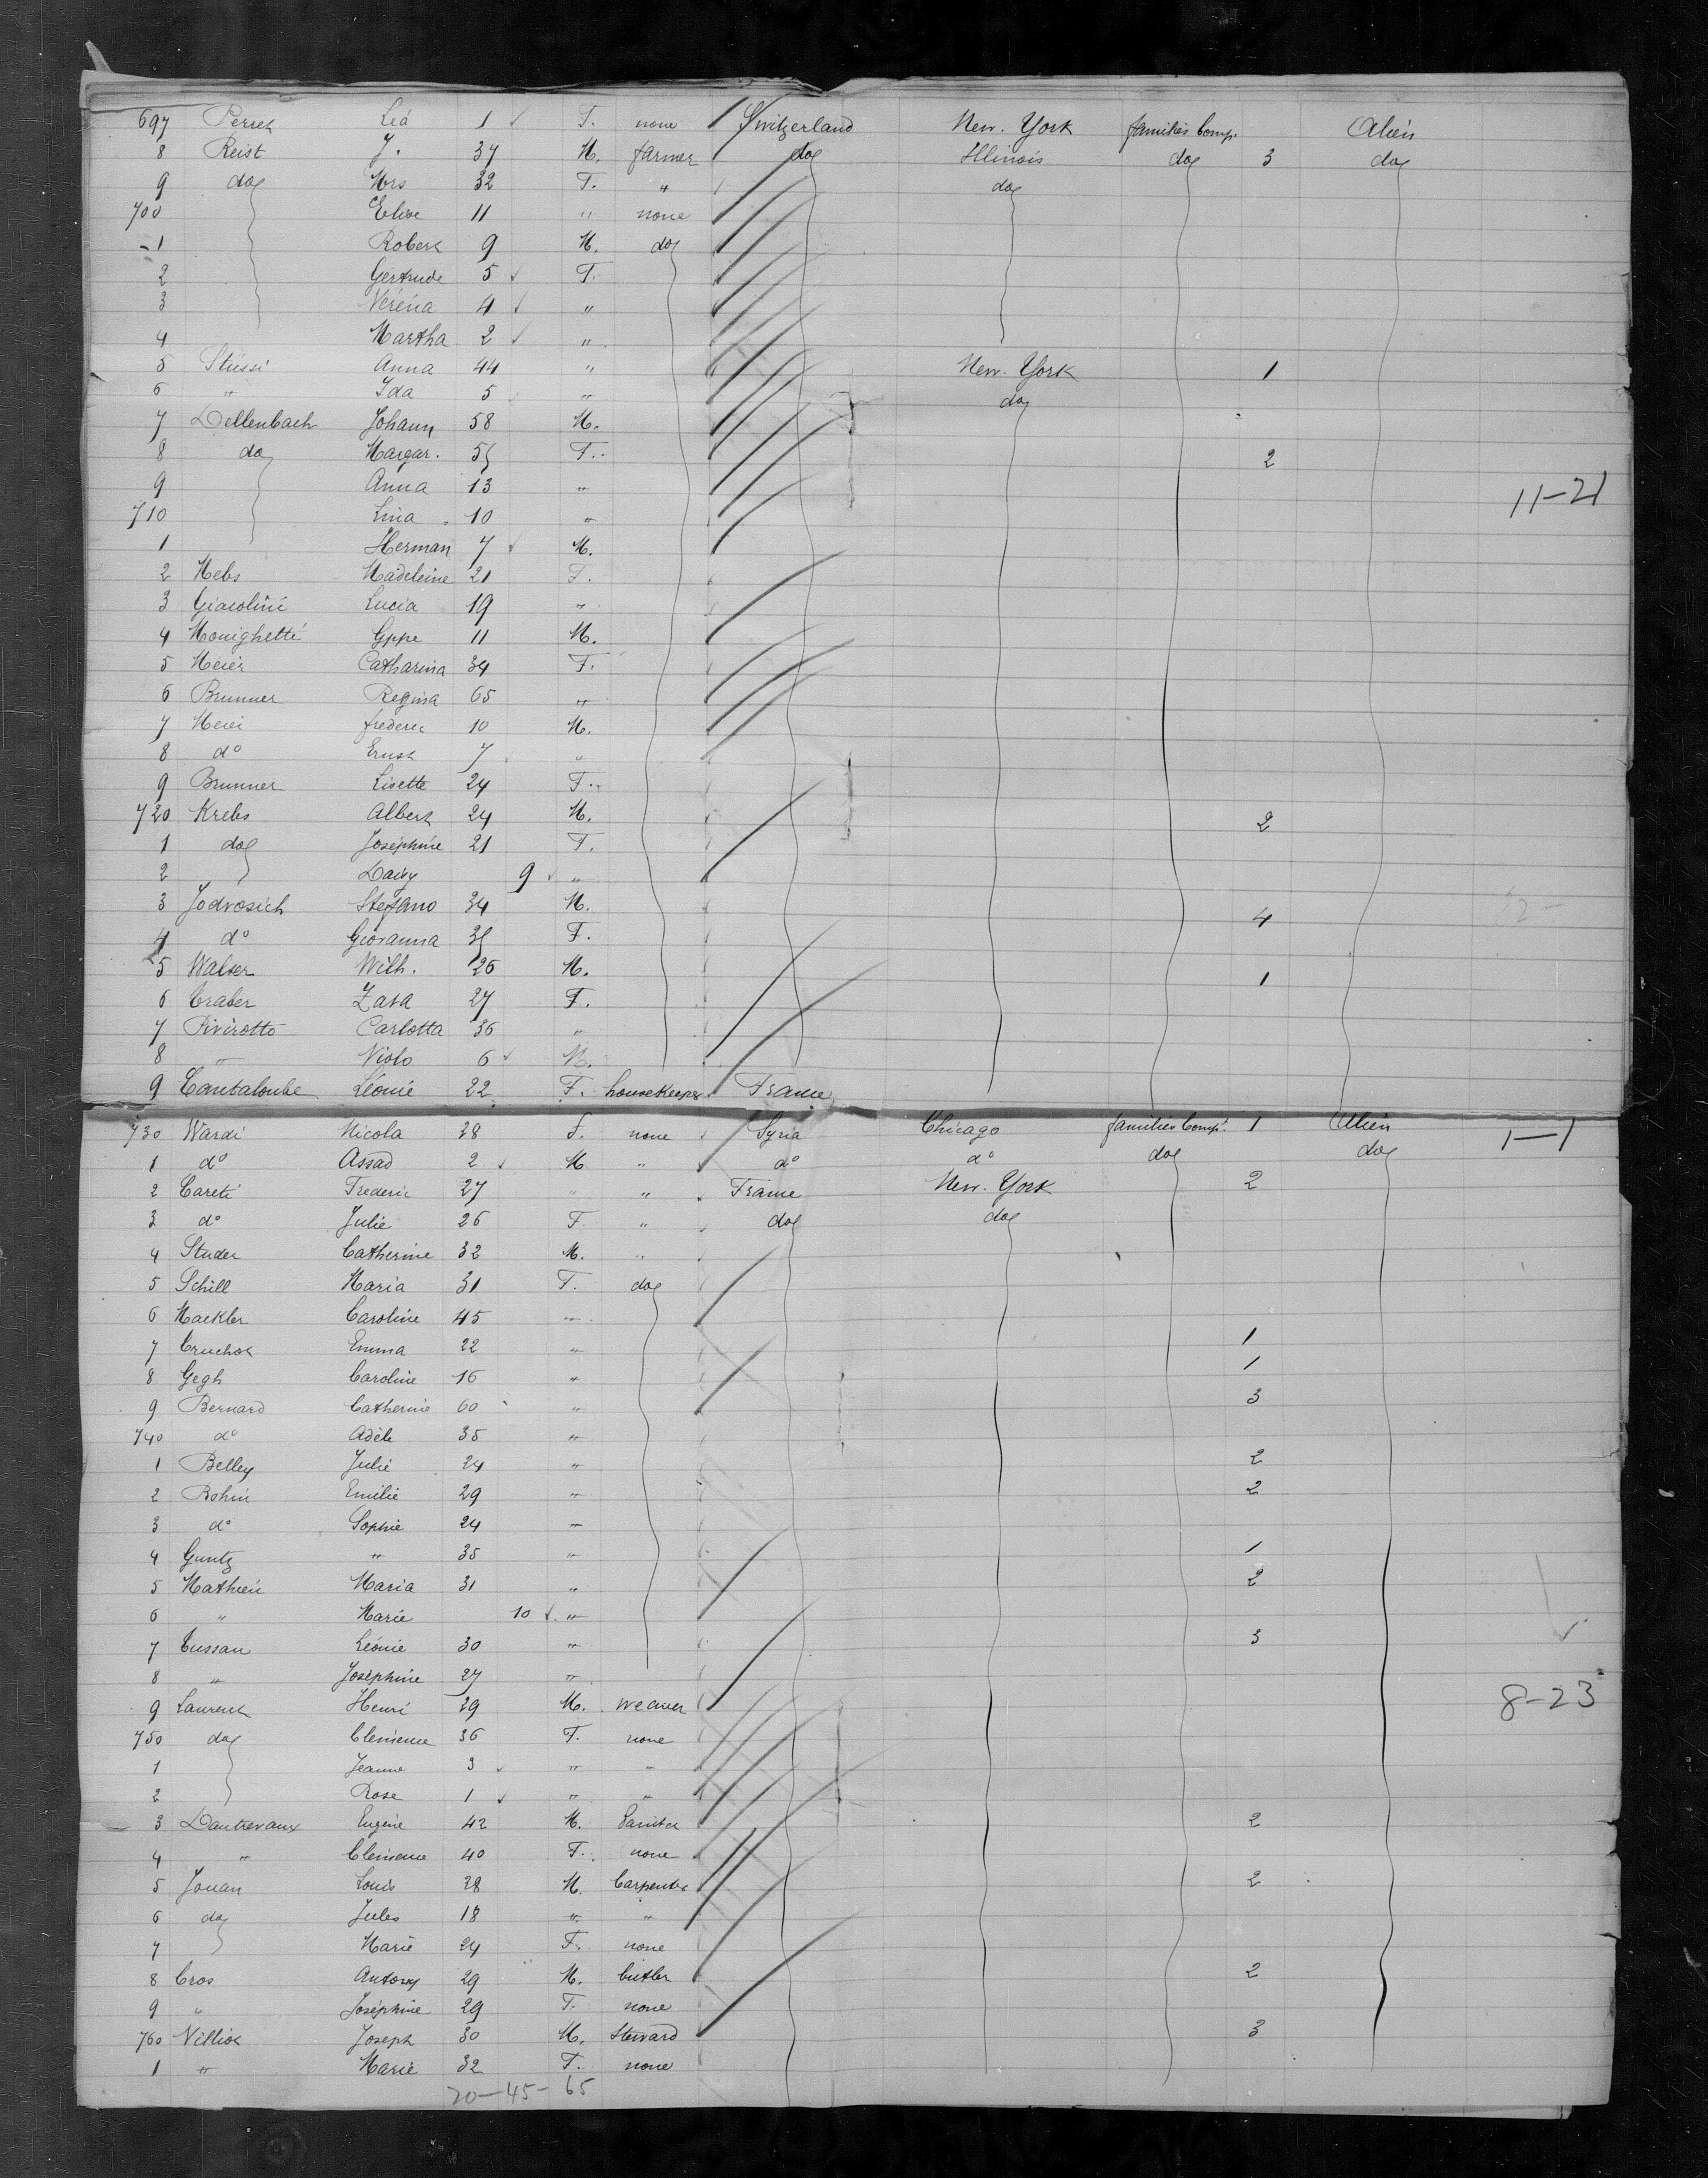 697 Perret Léa 1 ✓ F. none Switzerland New. York families Comp. Alien
8 Reist J. 37 M. farmer do Illinois do 3 do
9 do Mrs 32 F. " do
700 Elise 11 " none
1 Robert 9 M. do
2 Gertrude 5 ✓ F.
3 Véréna 4 ✓ "
4 Martha 2 ✓ "
5 Stüssi Anna 44 " New. York 1
6 " Ida 5 " do
7 Dellenbach Johann 58 M.
8 do Margar. 55 F. 2
9 Anna 13 "
11-21
710 Lina 10 "
1 Herman 7 ✓ M.
2 Mebs Madeleine 21 F.
3 Giacolini Lucia 19 "
4 Monighetti Gppe 11 M.
5 Meier Catharina 34 F.
6 Brunner Regina 65 "
7 Meier frederic 10 M.
8 do Ernst 7 "
9 Brunner Lisette 24 F.
720 Krebs Albert 24 M. 2
1 do Joséphine 21 F.
2 Daisy 9 ✓ "
3 Jodrosich Stefano 34 M. 4 32-
4 do Giovanna 35 F.
5 Walser Wilh. 26 M. 1
6 Graber Zasa 27 F.
7 Pivirotto Carlotta 36 "
8 " Violo 6 ✓ M.
9 Cantaloube Léonie 22 F. housekeeper France
730 Wardi Nicola 28 F. none Syria Chicago families Comp. 1 Alien 1-1
1 do Assad 2 ✓ M " do do do do
2 Careti Frederic 27 " " France New. York 2
3 do Julie 26 F " do do
4 Studer Catherine 32 M. "
5 Schill Maria 31 F. do
6 Mackler Caroline 45 "
7 Cruchot Emma 22 " 1
8 Gegh Caroline 16 " 1
9 Bernard Catherine 60 " 3
740 do Adèle 35 "
1 Belley Julie 24 " 2
2 Rohin Emilie 29 " 2
3 do Sophie 24 "
4 Guntz " 35 " 1
5 Mathieu Maria 31 " 2
6 " Marie 10 ✓ "
7 Cussan Léonie 30 " 3
8 " Joséphine 27 "
9 Laurent Henri 29 M. weaver 8-23
750 do Clemence 36 F. none
1 Jeanne 3 ✓ " "
2 Rose 1 ✓ " "
3 Dautrevaux Eugène 42 M. 2
4 " Clemence 40 F. none
5 Jouan Louis 28 M. Carpenter 2
6 do Jules 18 " "
7 Marie 24 F. none
8 Cros Antony 29 M. Cutler 2
9 " Joséphine 29 F. none
760 Villiot Joseph 30 M. Steward 3
1 " Marie 32 F. none
20-45-65